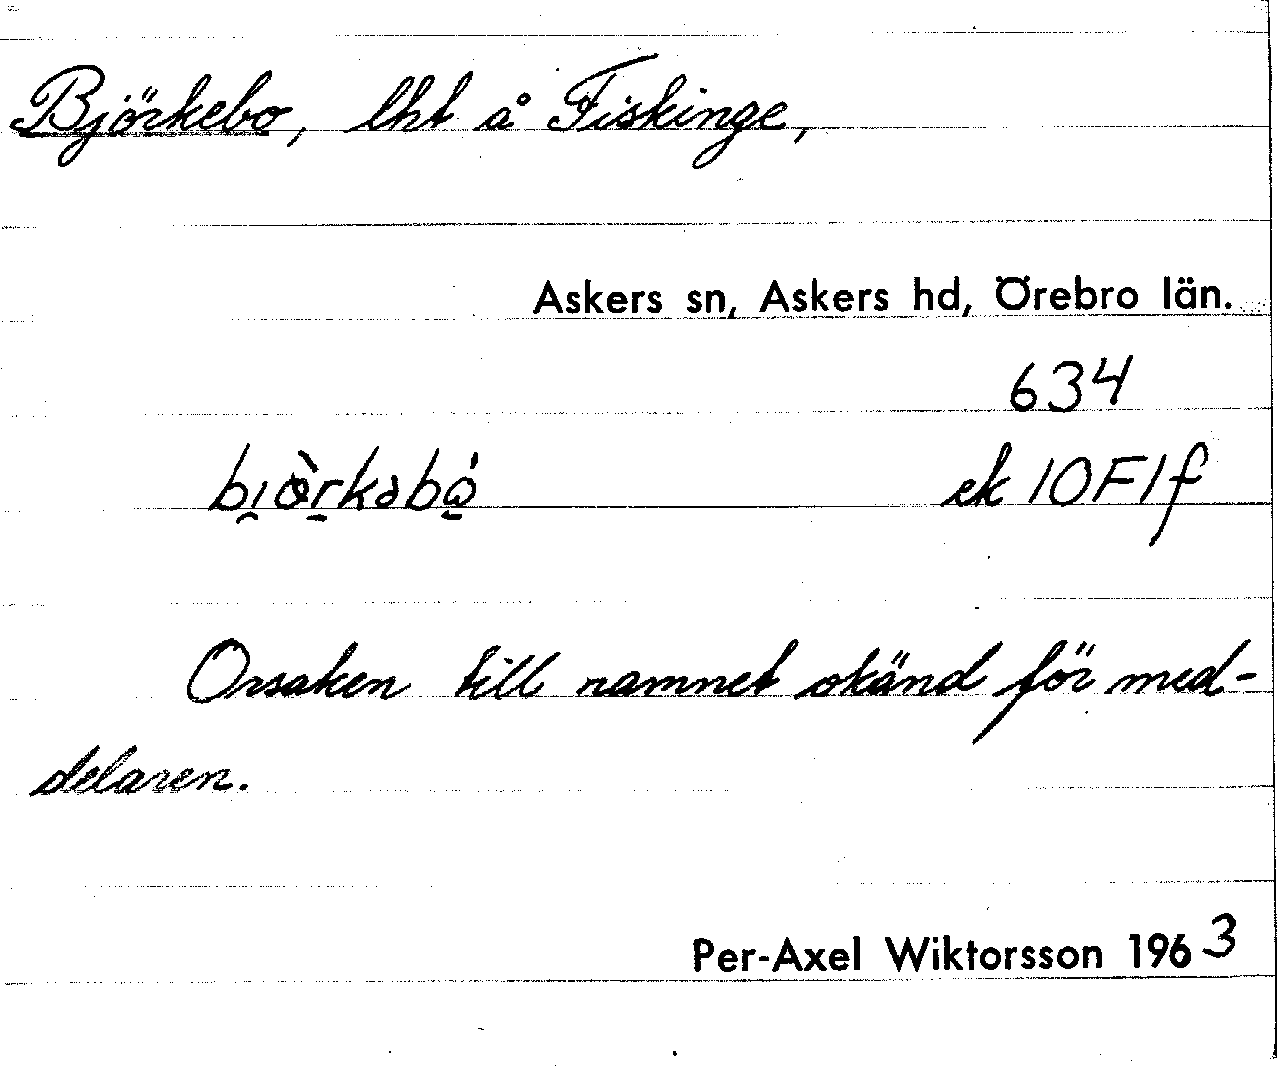 Björkebo, lht å Fiskinge,
Askers sn, Askers hd, Örebro län.
634
bi̯ö̀r̠kəbó̠ ek 10F1f
Orsaken till namnet okänd för med-
delaren.
Per-Axel Wiktorsson 1963